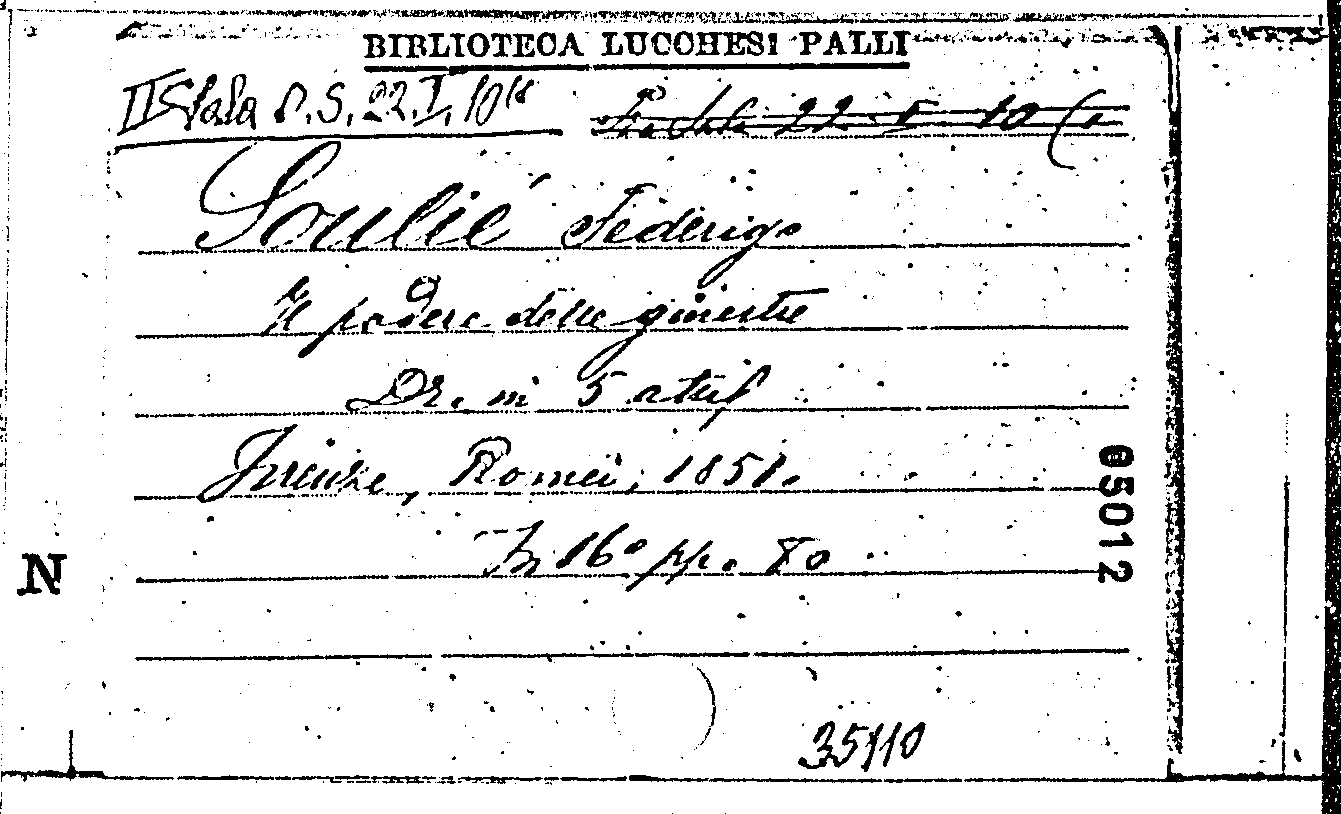 BIBLIOTECA LUCCHESI PALLI
II Sala P. S. 22. I. 10
22 I 10
Soulié Federigo
Il podere delle ginestre
Dr. in 5 atti
Firenze, Romei, 1851.
In 16° pp. 80
05012
N
35110